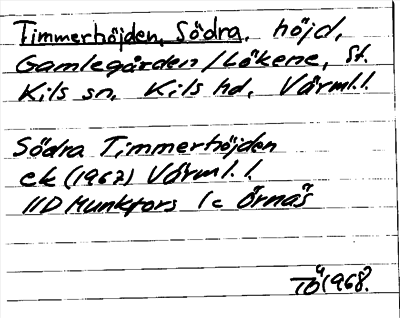 Timmerhöjden, Södra, höjd,
Gamlegården/Lökene, St.
Kils sn, Kils hd, Värml.l.
Södra Timmerhöjden
ek (1967) Värml.l.
11D Munkfors 1c Örnäs
1968.